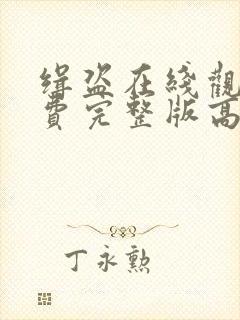 缉盗在綫觀
費完整版高
丁永勲